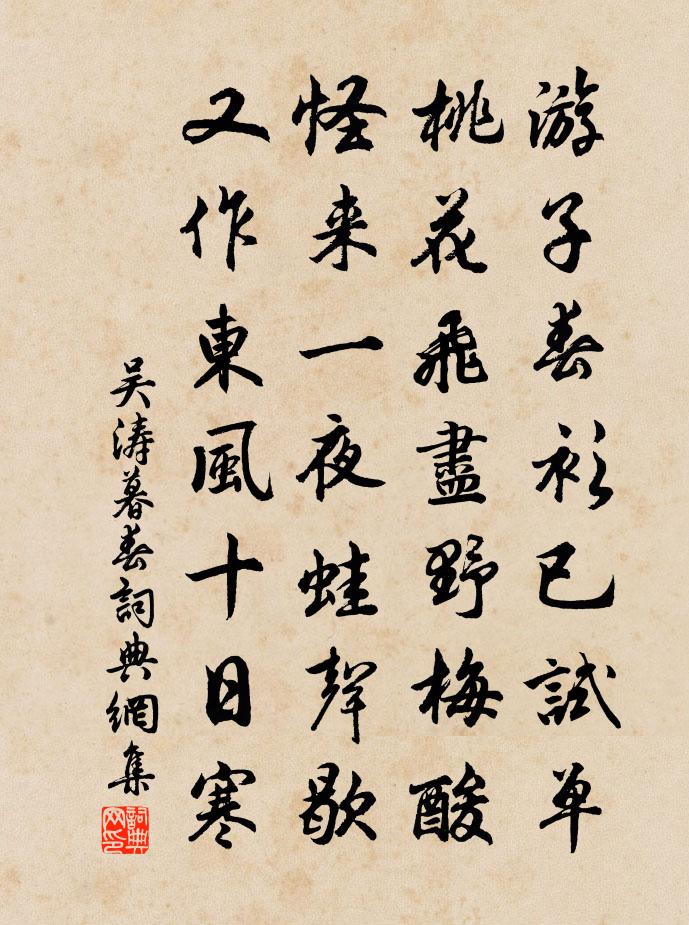 游子春衫已試单
桃花飛盡野梅酸
怪来一夜蛙聲歇
又作東風十日寒
吴涛暮春詞典網集
詞典
网印